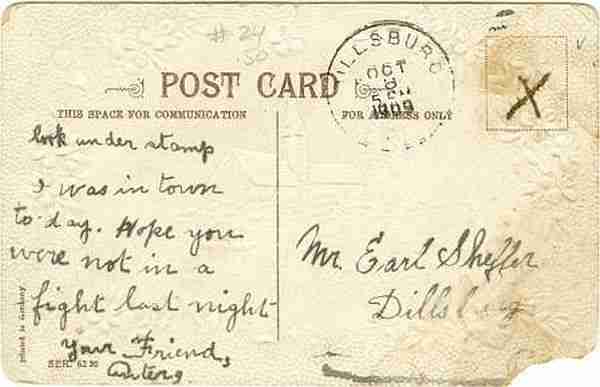 # 24
.50
ILLSBURG
OCT
8
5 PM
1909
POST CARD
THIS SPACE FOR COMMUNICATION
FOR ADDRESS ONLY
X
look under stamp
I was in town
to-day. Hope you
were not in a
fight last night
Your Friend,
Mr. Earl Sheffer
Dillsburg
Printed in Germany
SER. 6230